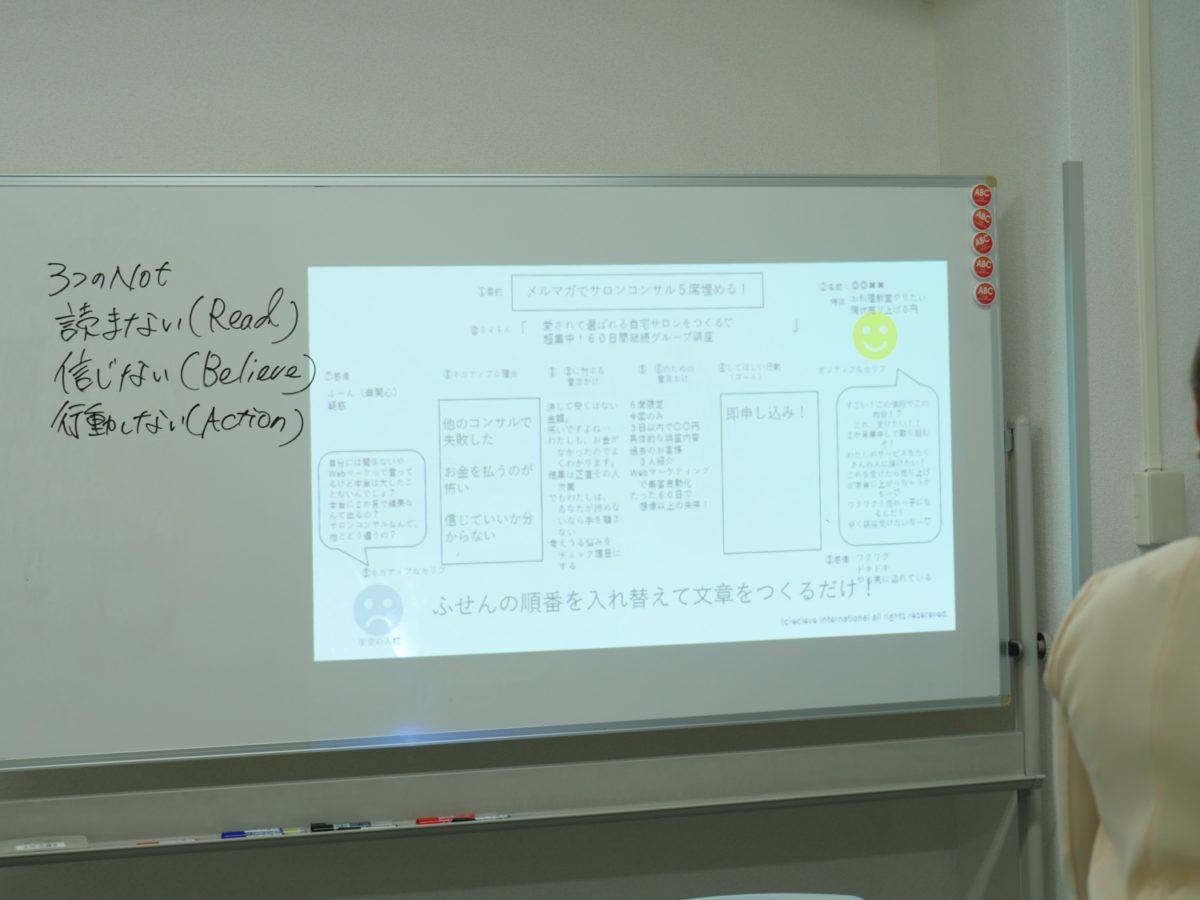 3つのNot
読まない(Read)
信じない(Believe)
行動しない(Action)
ABC
ABC
ABC
ABC
ABC
メルマガでサロンコンサル5席埋める!
愛されて選ばれる自宅サロンをつくる♡
超集中!60日間継続グループ講座
お料理教室やりたい
現状売り上げ0円
ふーん(無関心)
疑惑
自分には関係ないや
Webマーケって言って
るけど本当は大したこ
とないんでしょ?
本当に2か月で結果な
んて出るの?
サロンコンサルなんて、
他とどう違うの?
②ネガティブなセリフ
他のコンサルで
失敗した
お金を払うのが
怖い
信じていいか分
からない
決して安くはない
金額。
怖いですよね…
わたしも、お金が
なかったのでよ
くわかります。
結果は正直その人
次第
でもわたしは、
あなたが諦めな
いなら手を離さ
ない
考えうる悩みを
チェック項目に
する
5席限定
今回のみ
3日以内で〇〇円
具体的な講座内容
過去のお客様
3人紹介
Webマーケティング
で集客自動化
たった60日で
想像以上の未来!
即申し込み!
ポジティブなセリフ
すごい!この値段でこの
内容!?
これ、受けたい!!
2か月集中して取り組む
ぞ!
わたしのサービスをたく
さんの人に届けたい!
これを受けたら売り上げ
が本当に上がっちゃうか
も…♡
ワクワク!売れっ子にな
るんだ!
早く講座受けたいな…♡
ワクワク
ドキドキ
やる気に溢れている
ふせんの順番を入れ替えて文章をつくるだけ!
international all rights resereved.